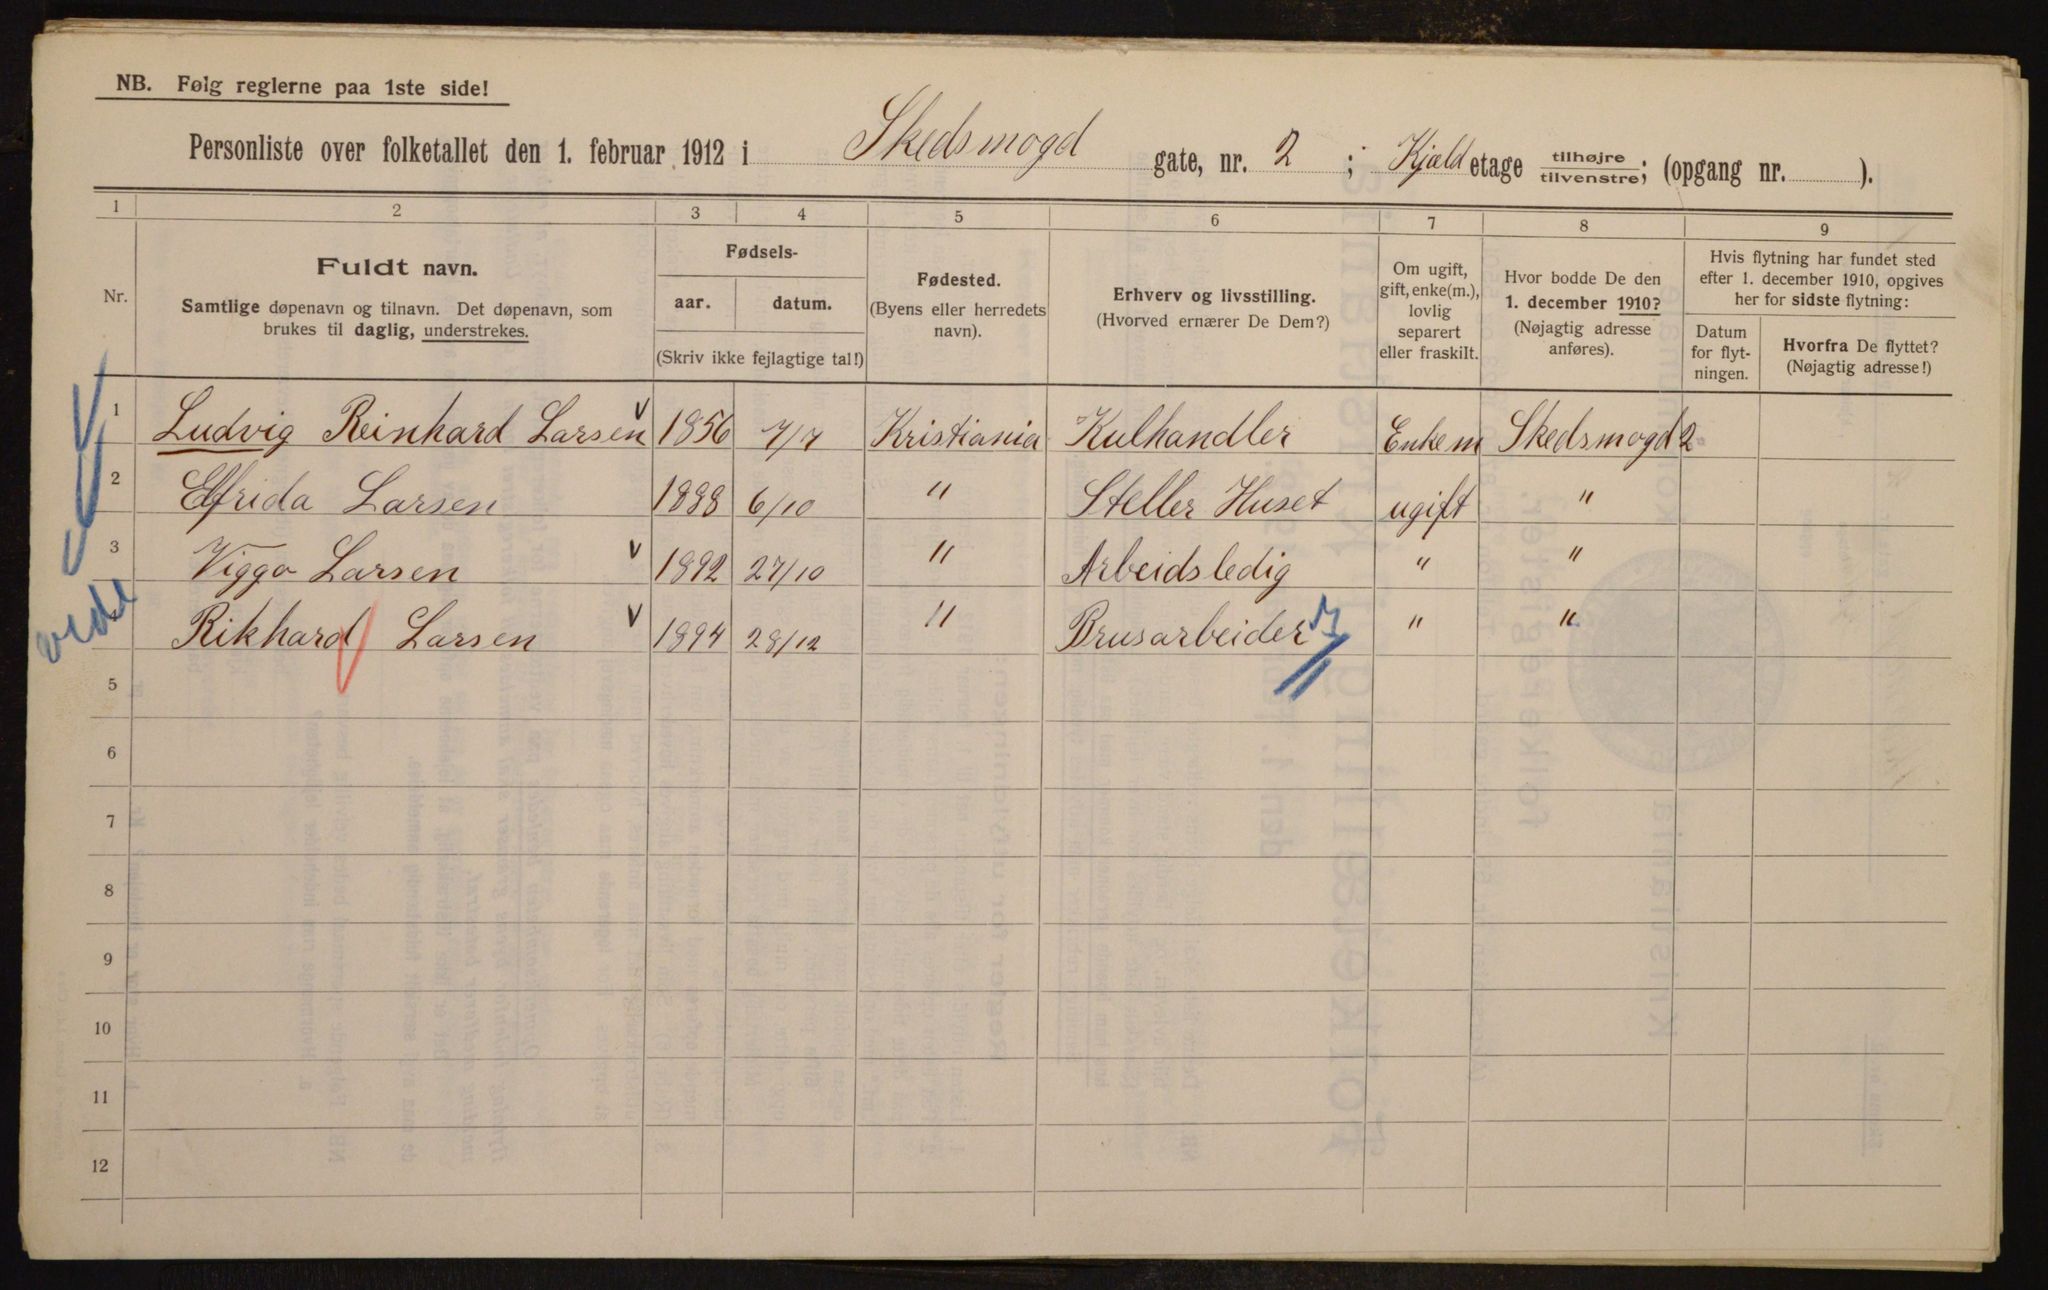 NB. Følg reglerne paa 1ste side!
Personliste over folketallet den 1. februar 1912 i Skedsmogd gate, nr. 2 ; Kjæld etage tilhøjre tilvenstre; (opgang nr. ).
1 2 3 4 5 6 7 8 9
Nr.
Fuldt navn.
Samtlige døpenavn og tilnavn. Det døpenavn, som
brukes til daglig, understrekes.
Fødsels-
aar. datum.
(Skriv ikke fejlagtige tal!)
Fødested.
(Byens eller herredets
navn).
Erhverv og livsstilling.
(Hvorved ernærer De Dem?)
Om ugift,
gift, enke(m.),
lovlig
separert
eller fraskilt.
Hvor bodde De den
1. december 1910?
(Nøjagtig adresse
anføres).
Hvis flytning har fundet sted
efter 1. december 1910, opgives
her for sidste flytning:
Datum
for flyt-
ningen.
Hvorfra De flyttet?
(Nøjagtig adresse!)
1 Ludvig Reinhard Larsen 1856 7/7 Kristiania Kulhandler Enkem Skedsmogd 2
2 Elfrida Larsen 1888 6/10 " Steller Huset ugift "
3 Viggo Larsen 1892 27/10 " Arbeidsledig " "
4 Rikhard Larsen 1894 28/12 " Brusarbeider " "
5
6
7
8
9
10
11
12